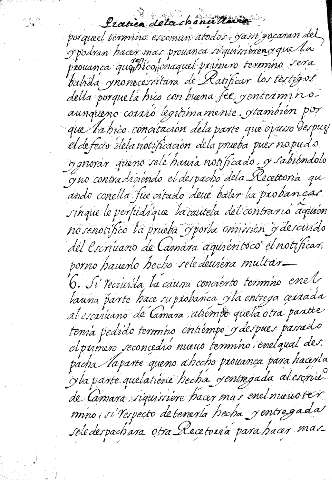 Practica de la chancilleria
porque el termino es comun atodos, y assi gozaran del
y podran hacer mas provança siquisieren, y que la
provança que hiço en aquel primero termino sera
balida, y no necesitara de Ratificar los testigos
della porque la hiço con buena fee, y en termino
aunque no corrio legitimamente, y tambien por
que la hiço con citacion de la parte que opuso despues
el defecto de la notificacion de la prueba pues no pudo
ygnorar que no se le havia notificado, y sabiendolo
y no contradiciendo el despacho de la Recettoria qu
ando con ella fue citado deve baler la probanças
sin que le perjudique la cautela del contrario aquien
no se notifico la prueba y por la omission, y descuido
del Escrivano de Camara aquien toco el notificar,
por no haverlo hecho se le deviera multar
6. Si recivida la causa con cierto termino en el
la una parte hace su probança y la entrega cerrada
al escrivano de Camara, ubiempo que la otra parte
tenia pedido termino en tiempo, y despues pasado
el primero se concedio nuevo termino, en el qual des
pacha la parte que no a hecho provança para hacerla
y la parte que la tiene hecha, y entregada al escriv.o
de Camara, siquisiere hacer mas en el nuevo ter
mino, si respecto de tenerla hecha, y entregada
se le despachara otra Recetoria para hacer mas